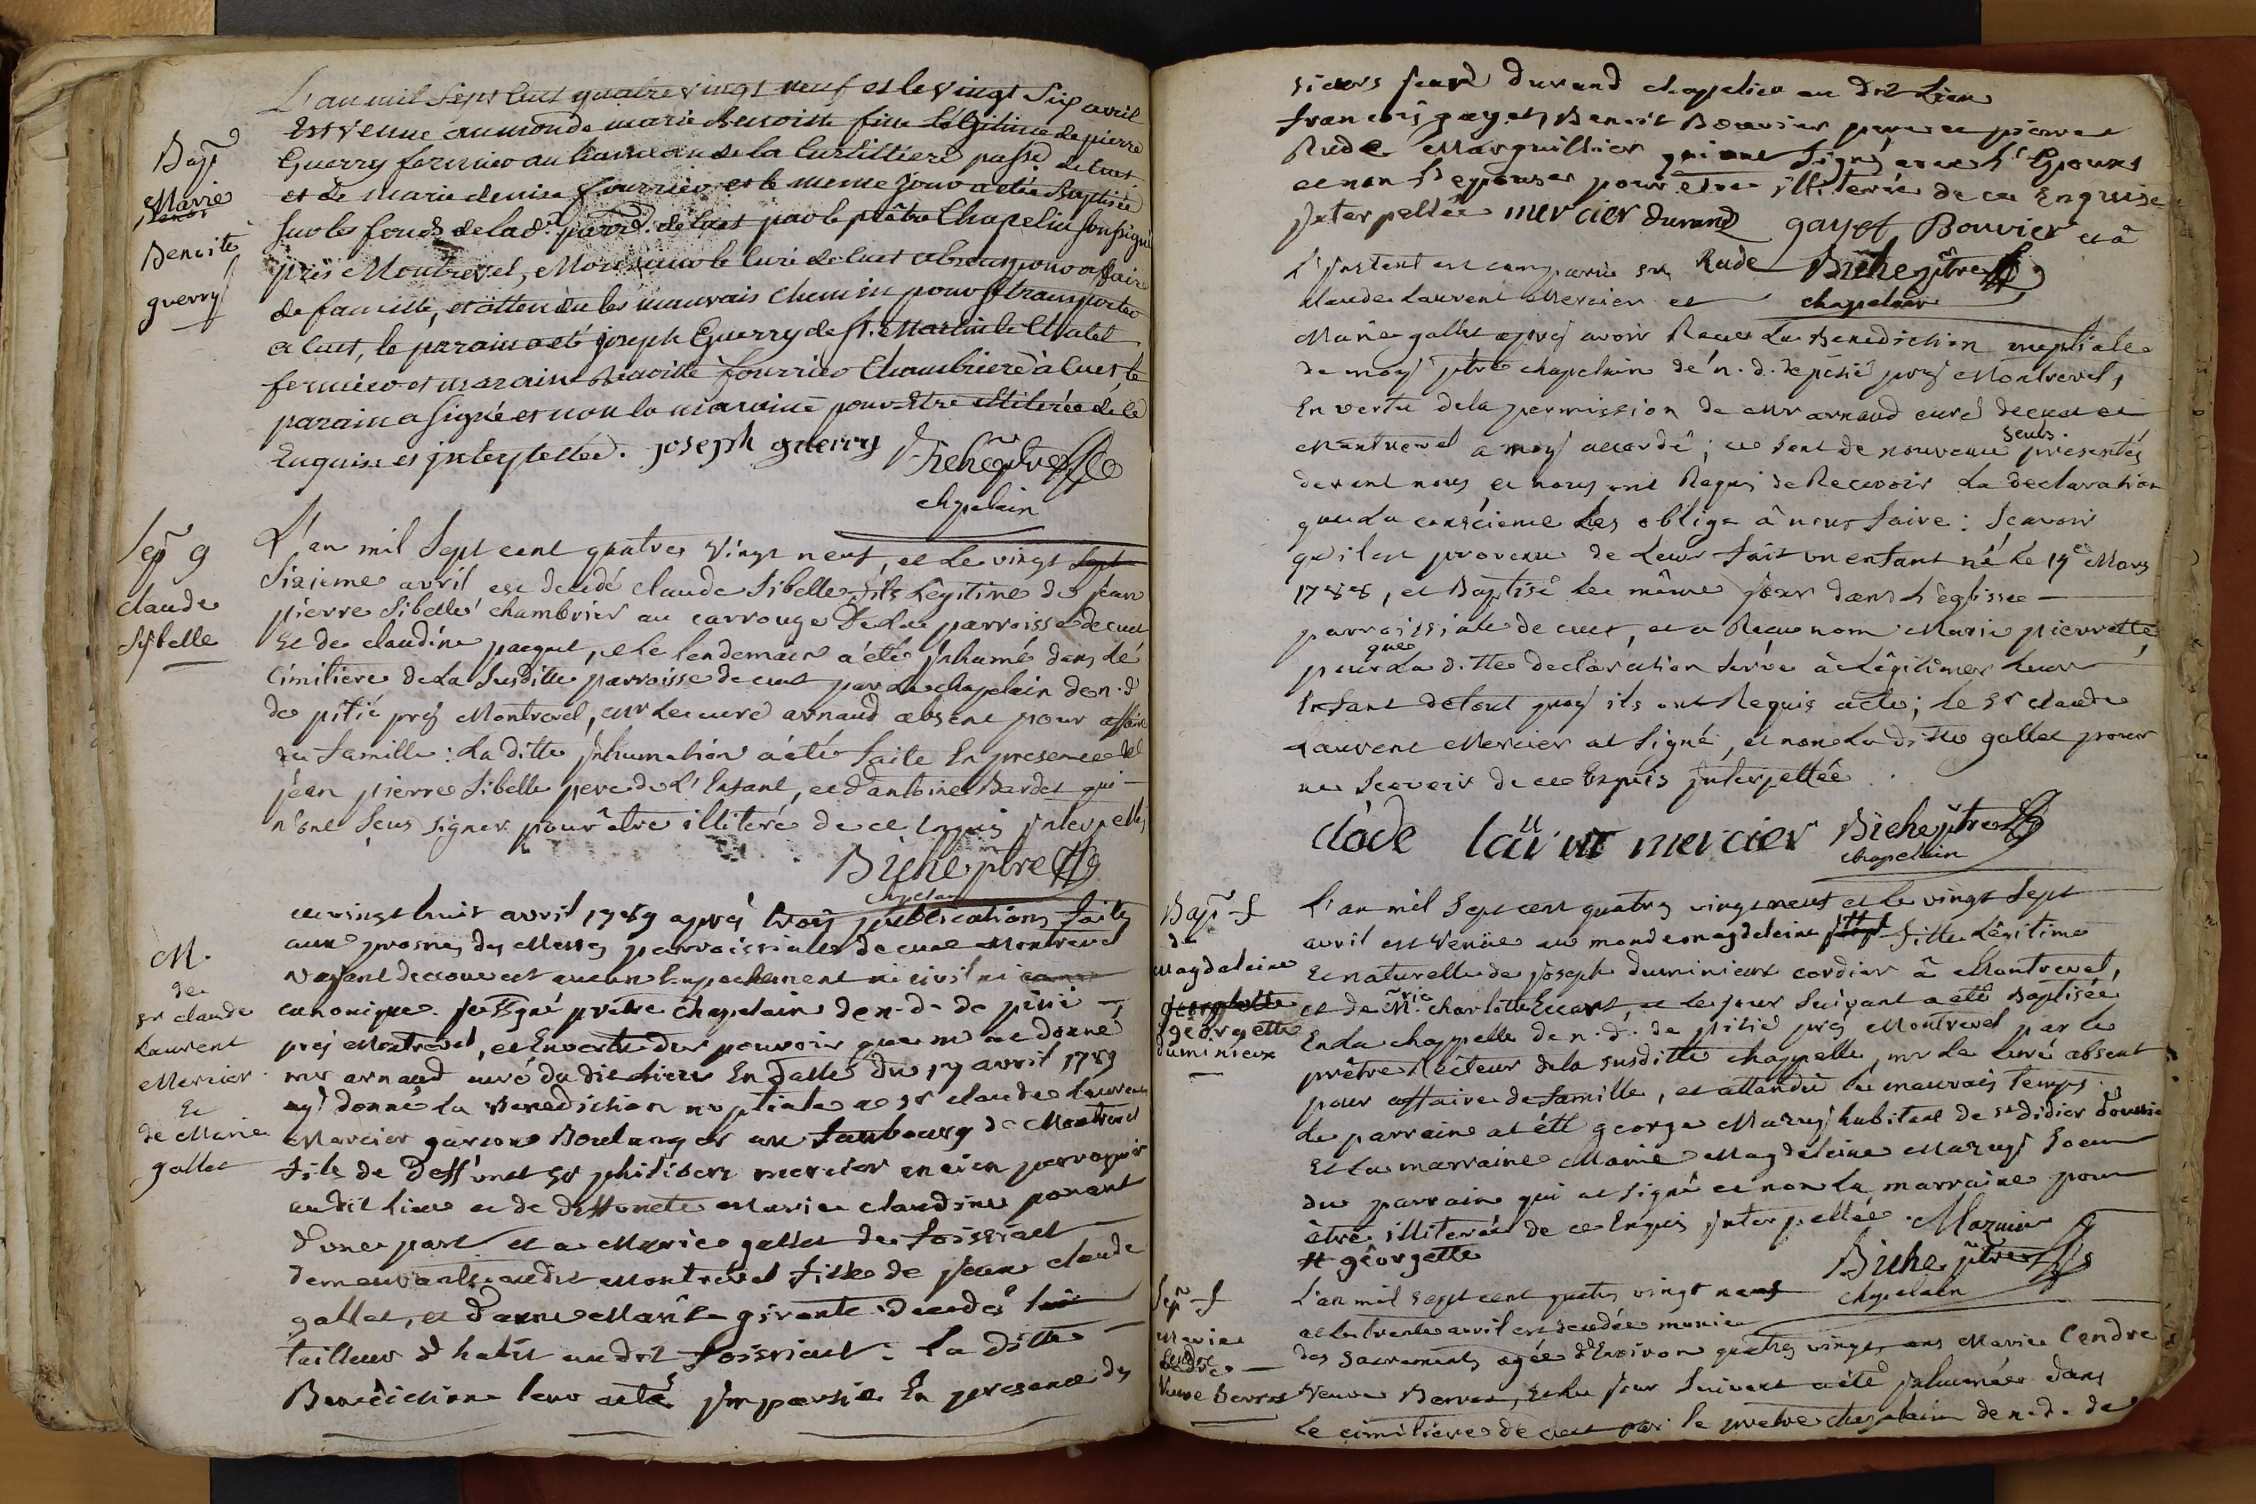 L'an mil Sept Cent quatre vingt neuf et le vingt Six avril
Bapt
Est venue au monde marie Benoitte fille légitime de pierre
Guerry fermier au hameau de la Curtillière passé de Cuet
Marie
et de marie denise fourrier et le meme jour a été Baptisée
Sur les fonds de la d. parr. de Cuet par le prêtre Chapelin soussigné
Benoite
près Montrevel, Monsieur le Curé de Cuet absent pour affaire
guerry
de famille, et attendu les mauvais chemin pour se transporter
a Cuet, le parain a été joseph Guerry de St. Martin le Chatel
fermier et maraine Benoitte fourrier Chambriere à Cuet, le
parain a Signé et non la maraine pour être illiterée de ce
Enquise et interpellée. joseph guerry Biche ptre
chapelain
Sepr g
Claude
Sybelle
L'an mil Sept cent quatre vingt neuf, et le vingt Sept
Sixieme avril est decedé claude Sibelle fils légitime de jean
pierre Sibelle chambrier au carrouge de la parroisse de cuet
Et de claudine paquet, et le lendemain a été inhumé dans le
Cimitiere de la Susditte parroisse de cuet par le chaplain de n. d
de pitié prés Montrevel, mr le curé arnaud absent pour affaire
de famille: la ditte inhumation a été faite En presence de
jean pierre Sibelle pere de l'Enfant, et d'antoine Bardet qui
n'ont Seus signer pour être illiteré de ce Enquis interpellés
Biche ptre
chapelain
M.
de
sr claude
Laurent
Mercier
Et
de Marie
gallet
Le vingt huit avril 1789 aprés trois publications faites
aux prosnes des Messes parroissiales de cuet Montrevel
N'ayant decouvert aucun Empechement ni civil ni cano
canonique. je Sousigné prêtre chapelain de n. d. de pitié
prés Montrevel, et En vertu du pouvoir que m'a donné
mr arnaud curé du dit lieu En datte du 17 avril 1789
ay donné la Benediction nuptiale a sr claude Laurent
Mercier garcon Boulanger au faubourg de Montrevel
fils de Deffunct sr philibert mercier ancien
au dit lieu et de deffuncte Marie claudine ponant
d'une part et a Marie gallet de foissiat
demeurante audit Montrevel fille de jean claude
gallet, et d'anne Marie gironte decedés
tailleur d'habit au dit foissiat: la ditte
Benediction leur a été impartie En presence des
sieurs jean durand chapelier au dit lieu
francois gayet, Benoit Bouvier pere et pierre
Rude Marguillier qui ont Signé avec l'Epoux
et non l'epouse pour être illiterée de ce Enquise
interpellée mercier durand gayet Bouvier et à
L'instent est comparu sr Rude Biche ptre
claude Laurent Mercier et chapelain
Marie gallet aprés avoir Receu la Benediction nuptiale
de moy ptre chapelain de n. d. de pitié prés Montrevel,
En vertu de la permission de Mr arnaud curé de cuet et
Montrevel a moy accordé; ce sont de nouveau seuls présentés
devant nous et nous ont Requis de Recevoir la declaration
que la conscience les oblige à nous faire: Scavoir
qu'il est provenu de Leur fait un enfant né Le 19e Mars
1788, et Baptisé Le même jour dans l'église
parroissiale de cuet, et a Receu nom Marie pierrette
pour que la ditte declaration serve à Légitimer Leur
Enfant de tout quoy ils ont Requis acte; Le sr claude
Laurent Mercier at Signé, et non La ditte gallet pour
ne Scavoir de ce Enquis interpellée
clode mercier Biche ptre
chapelain
Bapt f
de
Magdeleine
georgette
duminieux
L'an mil Sept cent quatre vingt neuf et le vingt Sept
avril est venüe au monde magdeleine fille Légitime
Et naturelle de joseph duminieux cordier à Montrevel,
et de Mrie charlotte Ecart, et le jour Suivant a été Baptisée
En la chappelle de n. d. de pitié prés Montrevel par le
prêtre Recteur de la susditte chappelle, mr le Curé absent
pour affaire de famille, et attandu le mauvais temps.
Le parrain at été george Mazuy habitant de st didier d'oussia
Et la marraine Marie Magdeleine Mazuy Soeur
du parrain qui at signé et non la marraine pour
être illiterée de ce Enquis interpellée. Mazuir
# géorgette Biche ptre
chapelain
Sepr f
Marie
Cendre
Veuve Bevros
L'an mil sept cent quatre vingt neuf
et le trente avril est decedée munie
des Sacrements agée d'Environ quatre vingt ans Marie Cendre
Veuve Bevros, et le jour Suivant a été inhumée dans
Le cimitiere de cuet par le prêtre chapelain de n. d. de